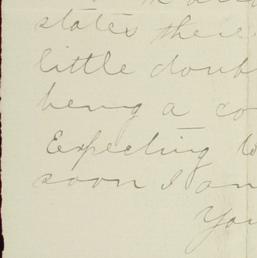 states there
little doub
being a co
Expecting to
soon I am
You